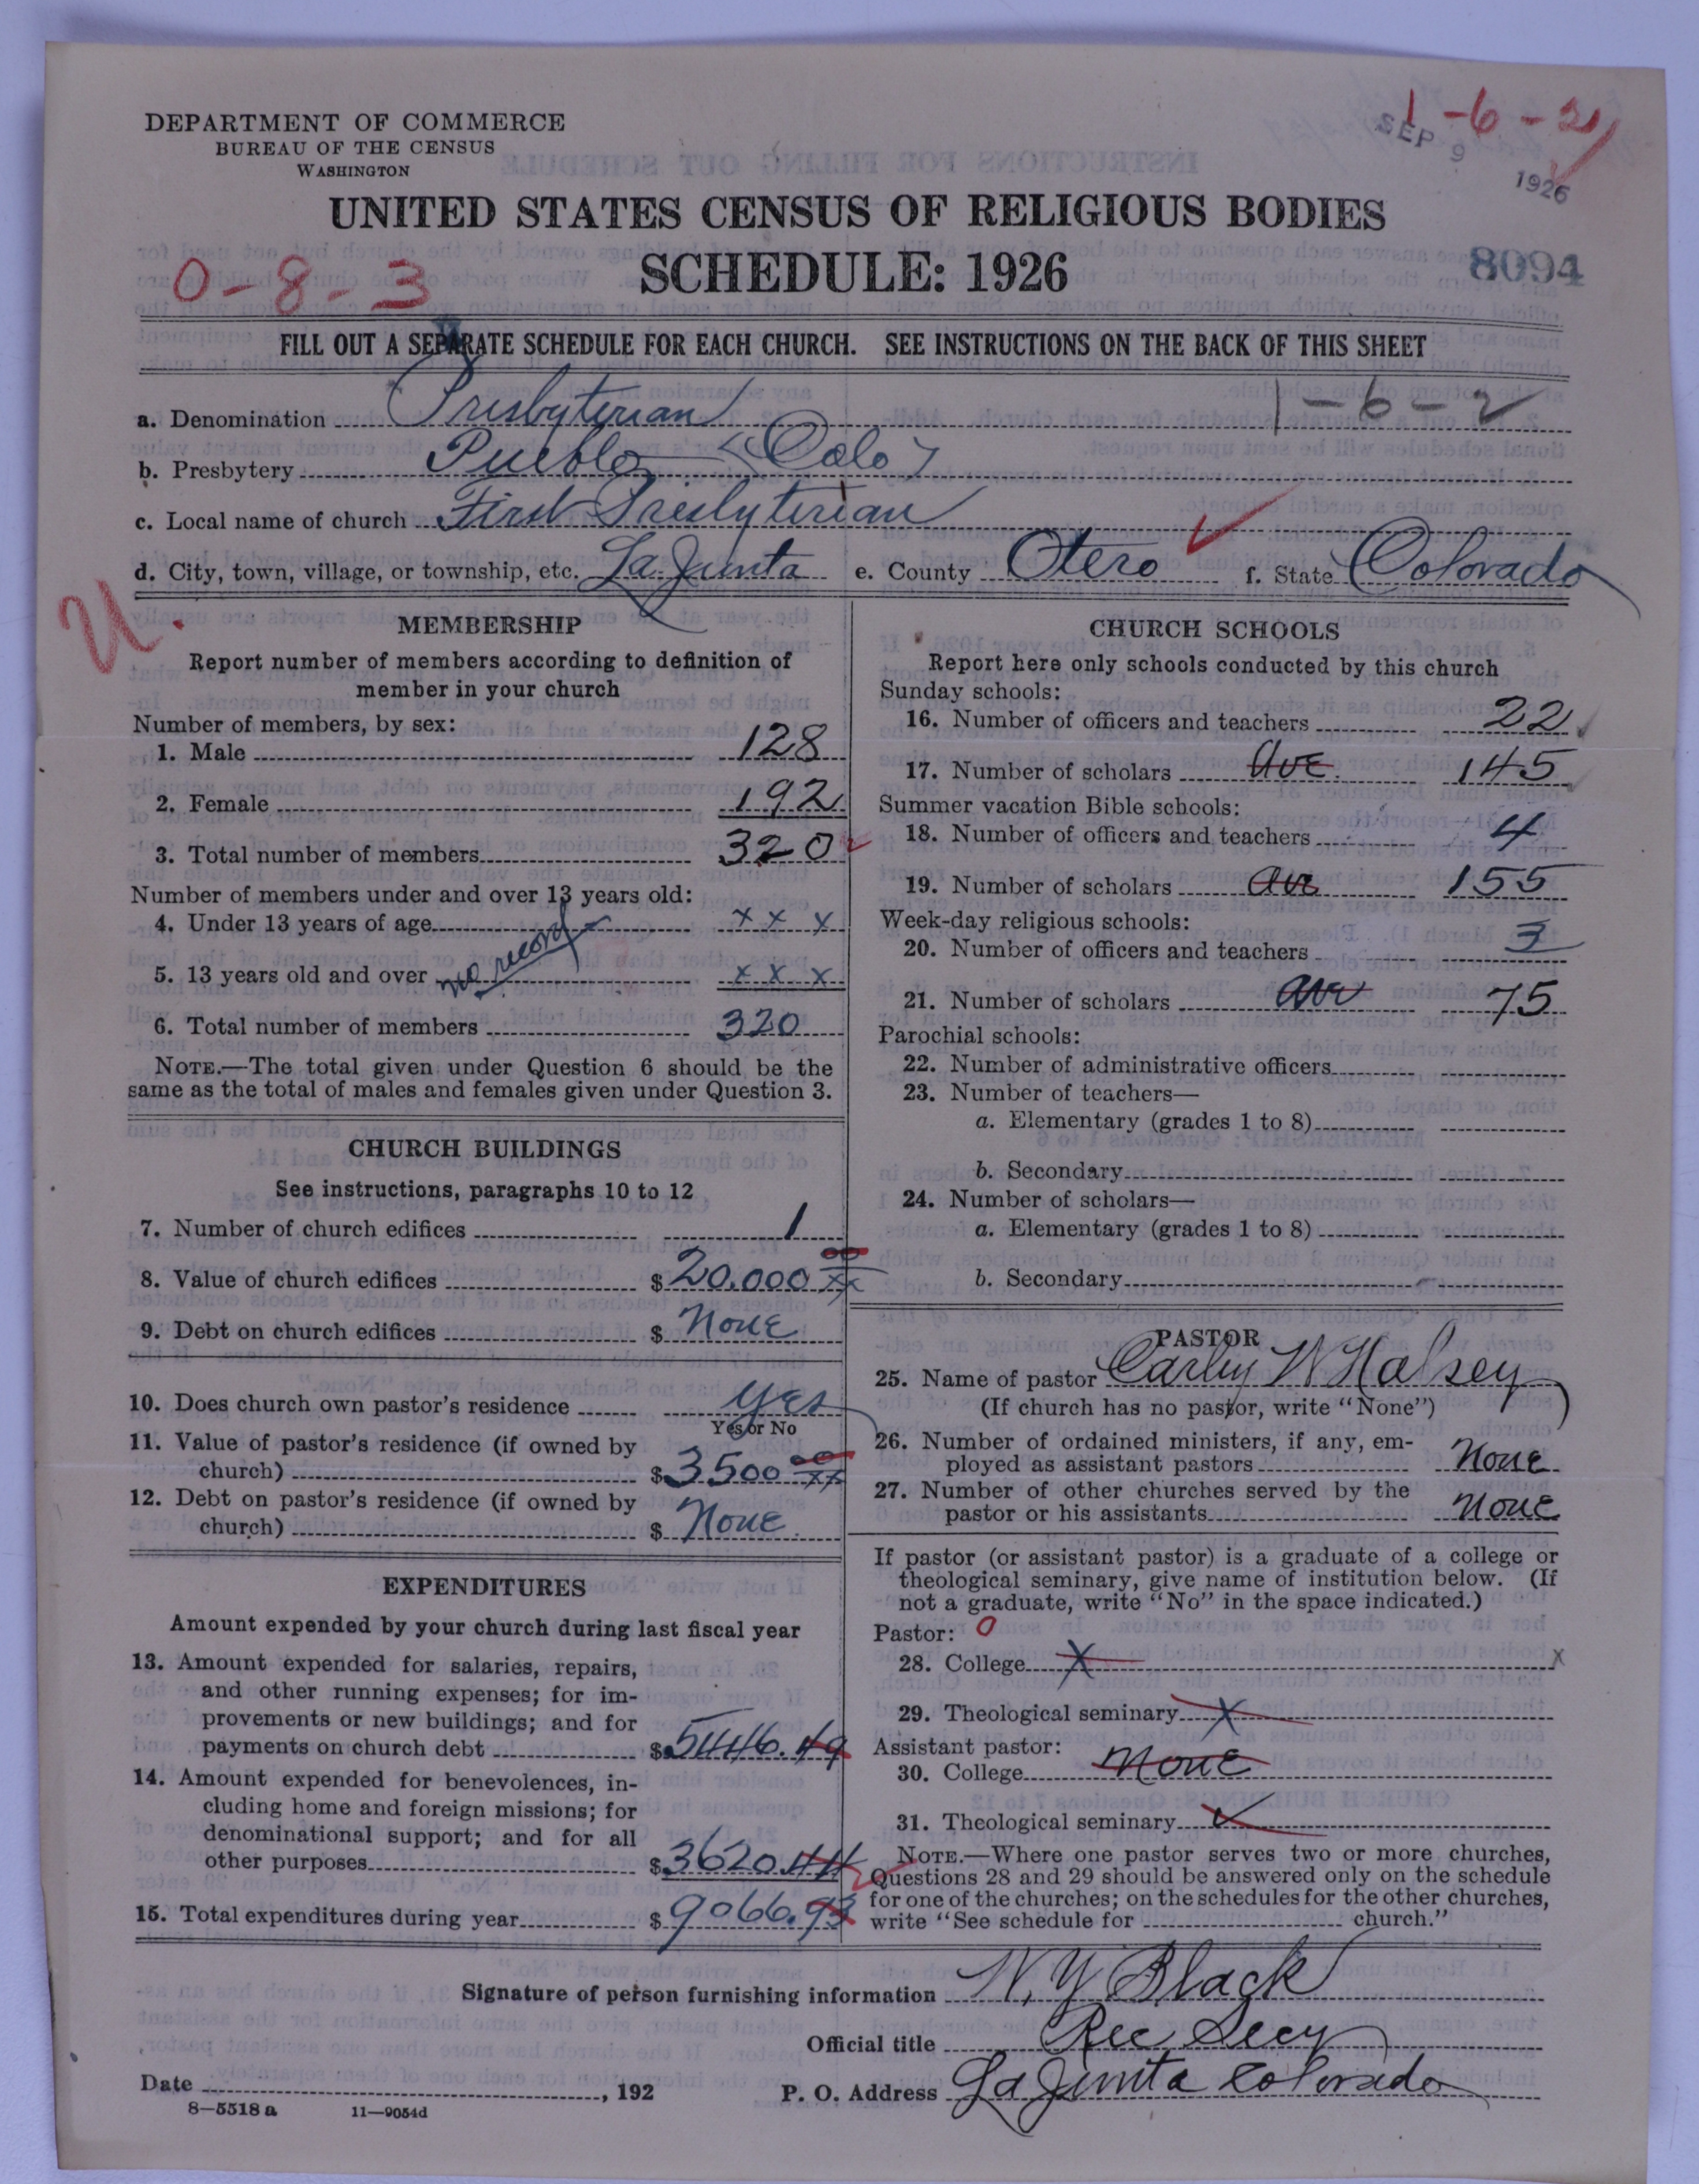 DEPARTMENT OF COMMERCE
BUREAU OF THE CENSUS
WASHINGTON
1-6-2
SEP 9 1926
UNITED STATES CENSUS OF RELIGIOUS BODIES
SCHEDULE: 1926
8094
0-8-3
FILL OUT A SEPARATE SCHEDULE FOR EACH CHURCH. SEE INSTRUCTIONS ON THE BACK OF THIS SHEET
1-6-2
a. Denomination Presbyterian
b. Presbytery Pueblo (Colo)
c. Local name of church First Presbyterian
d. City, town, village, or township, etc. La Junta e. County Otero f. State Colorado
U
MEMBERSHIP
Report number of members according to definition of
member in your church
Number of members, by sex:
1. Male 128
2. Female 192
3. Total number of members 320
Number of members under and over 13 years old:
4. Under 13 years of age x x x
no record
5. 13 years old and over x x x
6. Total number of members 320
NOTE.—The total given under Question 6 should be the
same as the total of males and females given under Question 3.
CHURCH BUILDINGS
See instructions, paragraphs 10 to 12
7. Number of church edifices 1
8. Value of church edifices $ 20.000 00 xx
9. Debt on church edifices $ None
10. Does church own pastor's residence Yes
Yes or No
11. Value of pastor's residence (if owned by
church) $ 3500 00 xx
12. Debt on pastor's residence (if owned by
church) $ None
EXPENDITURES
Amount expended by your church during last fiscal year
13. Amount expended for salaries, repairs,
and other running expenses; for im-
provements or new buildings; and for
payments on church debt $ 5446.49
14. Amount expended for benevolences, in-
cluding home and foreign missions; for
denominational support; and for all
other purposes $ 3620.44
15. Total expenditures during year $ 9066.93
CHURCH SCHOOLS
Report here only schools conducted by this church
Sunday schools:
16. Number of officers and teachers 22
17. Number of scholars Ave. 145
Summer vacation Bible schools:
18. Number of officers and teachers 4
19. Number of scholars Ave 155
Week-day religious schools:
20. Number of officers and teachers 3
21. Number of scholars Ave 75
Parochial schools:
22. Number of administrative officers
23. Number of teachers—
a. Elementary (grades 1 to 8)
b. Secondary
24. Number of scholars—
a. Elementary (grades 1 to 8)
b. Secondary
PASTOR
25. Name of pastor W Halsey
(If church has no pastor, write "None")
26. Number of ordained ministers, if any, em-
ployed as assistant pastors None
27. Number of other churches served by the
pastor or his assistants None
If pastor (or assistant pastor) is a graduate of a college or
theological seminary, give name of institution below. (If
not a graduate, write "No" in the space indicated.)
Pastor: 0
28. College X x
29. Theological seminary X
Assistant pastor:
30. College None
31. Theological seminary
NOTE.—Where one pastor serves two or more churches,
Questions 28 and 29 should be answered only on the schedule
for one of the churches; on the schedules for the other churches,
write "See schedule for church."
Signature of person furnishing information W. Y Black
Official title Rec Secy
Date , 192 P. O. Address La Junta Colorado
8—5518 a 11—9054d